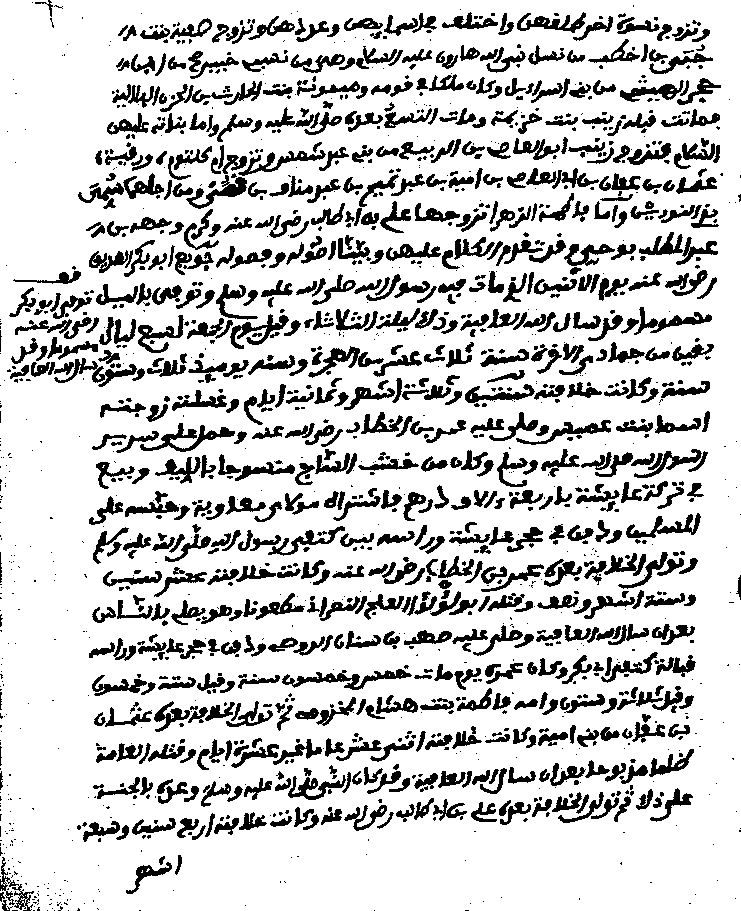 وتزوج نسوة اخر طلقهن واختلف في اسمايهن وعددهن وتزوج صفية بنت
حيي بن اخطب من نسل نبي الله هارون عليه السلام وهي من نصيب خيبر
من بني اسراءيل وكان ملكا في قومه وميمونة بنت الحارث بن الحزن الهلالية
فماتت قبله زينب بنت خزيمة ومات التسع بعده صلى الله عليه وسلم واما بناته عليهن
السلام فتزوج زينب ابو العاصي بن الربيع من بني عبد شمس وتزوج ام كلثوم ورقية
عثمان بن عفان بن ابي العاصي بن امية بن عبد شمس بن عبد مناف بن قصي ومن اجلهما سمي
بذي النورين واما فاطمة الزهرا تزوجها علي بن ابي طالب رضي الله عنه وكرم وجهه بن
عبد المطلب وقد تقدم الكلام عليهن وبينا اصوله وفصوله بويع ابو بكر الصديق
رضي الله عنه يوم الاثنين الذي مات فيه رسول الله صلى الله عليه وسلم وتوفي بالسل
توفي ابو بكر
رضي الله عنه
مسموما وقيل
بسل سال الله العافية
مسموما وقيل سال الله العافية وذلك ليلة الثلاثاء وقيل يوم الجمعة لسبع ليال
بقين من جمادى الاخرة سنة ثلاث عشر من الهجرة وسنه يوميذ ثلاث وستون
سنة وكانت خلافته سنتين وثلاثة اشهر وثمانية ايام وغسلته زوجته
اسما بنت عميس وصلى عليه عمر بن الخطاب رضي الله عنه وحمل على سرير
رسول الله صلى الله عليه وسلم وكان من خشب الساج منسوجا بالليف وبيع
في تركة عايشة باربعة ءالاف درهم فاشتراه مولى معاوية وحبسه على
المسلمين ودفن في حجر عايشة وراسه بين كتفي رسول الله صلى الله عليه وسلم
وتولى الخلافة بعده عمر بن الخطاب رضي الله عنه وكانت خلافته عشر سنين
وستة اشهر ونصف وقتله ابو لؤلؤ العلج النصراني مطعونا وهو يصلي بالناس
بعد ان سال الله العافية وصلى عليه صهيب بن سنان الرومي ودفن في حجر عايشة وراسه
قبالة كتفي ابي بكر وكان عمره يوم مات خمس وخمسون سنة وقيل ستة وخمسون
وقيل ثلاثة وستون وامه فاطمة بنت هشام المخزومي ثم تولى الخلافة بعده عثمان
بن عفان من بني امية وكانت خلافته اثنى عشر عاما غير عشرة ايام وقتله العامة
ظلما مذبوحا بعد ان سال الله العافية وقد كان النبي صلى الله عليه وسلم وعده بالجنة
على ذلك ثم تولى الخلافة بعده علي بن ابي طالب رضي الله عنه وكانت خلافته اربع سنين وسبعة
اشهر